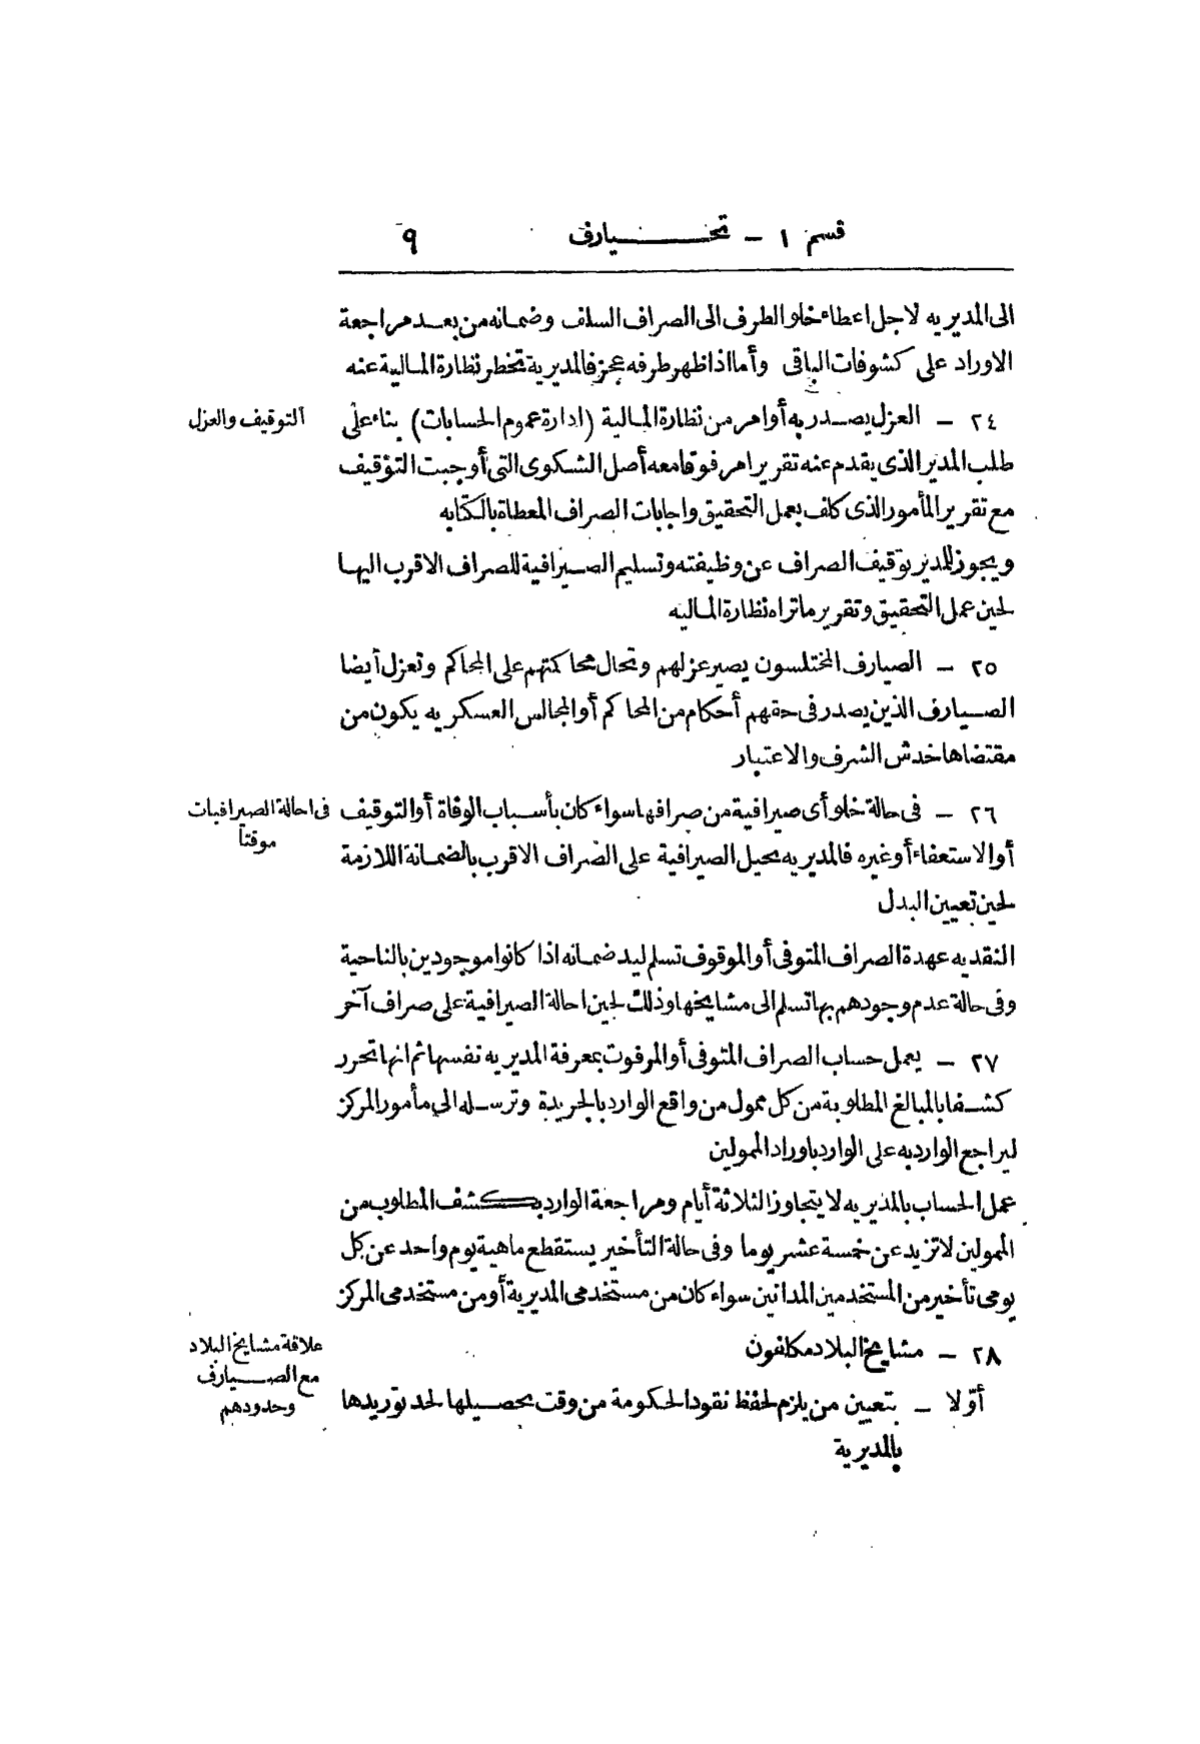 قسم ١ - تخـــيارف ٩
الى المديريه لاجل اعطاء خلو الطرف الى الصراف السلف وضمانه من بعد مراجعة
الاوراد على كشوفات الباقى وأما اذا ظهر طرفه عجز فالمديرية تخطر نظارة المالية عنه
٢٤ - العزل يصدر به أوامر من نظارة المالية (ادارة عموم الحسابات) بناء على
التوقيف والعزل
طلب المدير الذى يقدم عنه تقريرا مرفوقا معه أصل الشكوى التى أوجبت التوقيف
مع تقرير المأمور الذى كلف بعمل التحقيق واجابات الصراف المعطاة بالكتابه
ويجوز للمدير توقيف الصراف عن وظيفته وتسليم الصيرافية للصراف الاقرب اليها
لحين عمل التحقيق وتقرير ما تراه نظارة الماليه
٢٥ - الصيارف المختلسون يصير عزلهم وتحال محاكمتهم على المحاكم وتعزل أيضا
الصيارف الذين يصدر فى حقهم أحكام من المحاكم أو المجالس العسكريه يكون من
مقتضاها خدش الشرف والاعتبار
٢٦ - فى حالة خلو أى صيرافية من صرافها سواء كان بأسباب الوفاة أو التوقيف
فى احالة الصيرافيات
موقتا
أو الاستعفاء أو غيره فالمديريه تحيل الصيرافية على الصراف الاقرب بالضمانة اللازمة
لحين تعيين البدل
النقديه عهدة الصراف المتوفى أو الموقوف تسلم ليد ضمانه اذا كانوا موجودين بالناحية
وفى حالة عدم وجودهم بها تسلم الى مشايخها وذلك لحين احالة الصيرافية على صراف آخر
٢٧ - يعمل حساب الصراف المتوفى أو المرفوت بمعرفة المديريه نفسها ثم انها تحرر
كشفا بالمبالغ المطلوبة من كل ممول من واقع الوارد بالجريدة وترسله الى مأمور المركز
ليراجع الوارد به على الوارد باوراد الممولين
عمل الحساب بالمديريه لا يتجاوز الثلاثة أيام ومراجعة الوارد بكشف المطلوب من
الممولين لا تزيد عن خمسة عشر يوما وفى حالة التأخير يستقطع ماهية يوم واحد عن كل
يومى تأخير من المستخدمين المدانين سواء كان من مستخدمى المديرية أو من مستخدمى المركز
٢٨ - مشايخ البلاد مكلفون
علاقة مشايخ البلاد
مع الصيارف
وحدودهم
أوّلا - بتعيين من يلزم لحفظ نقود الحكومة من وقت تحصيلها لحد توريدها
بالمديرية